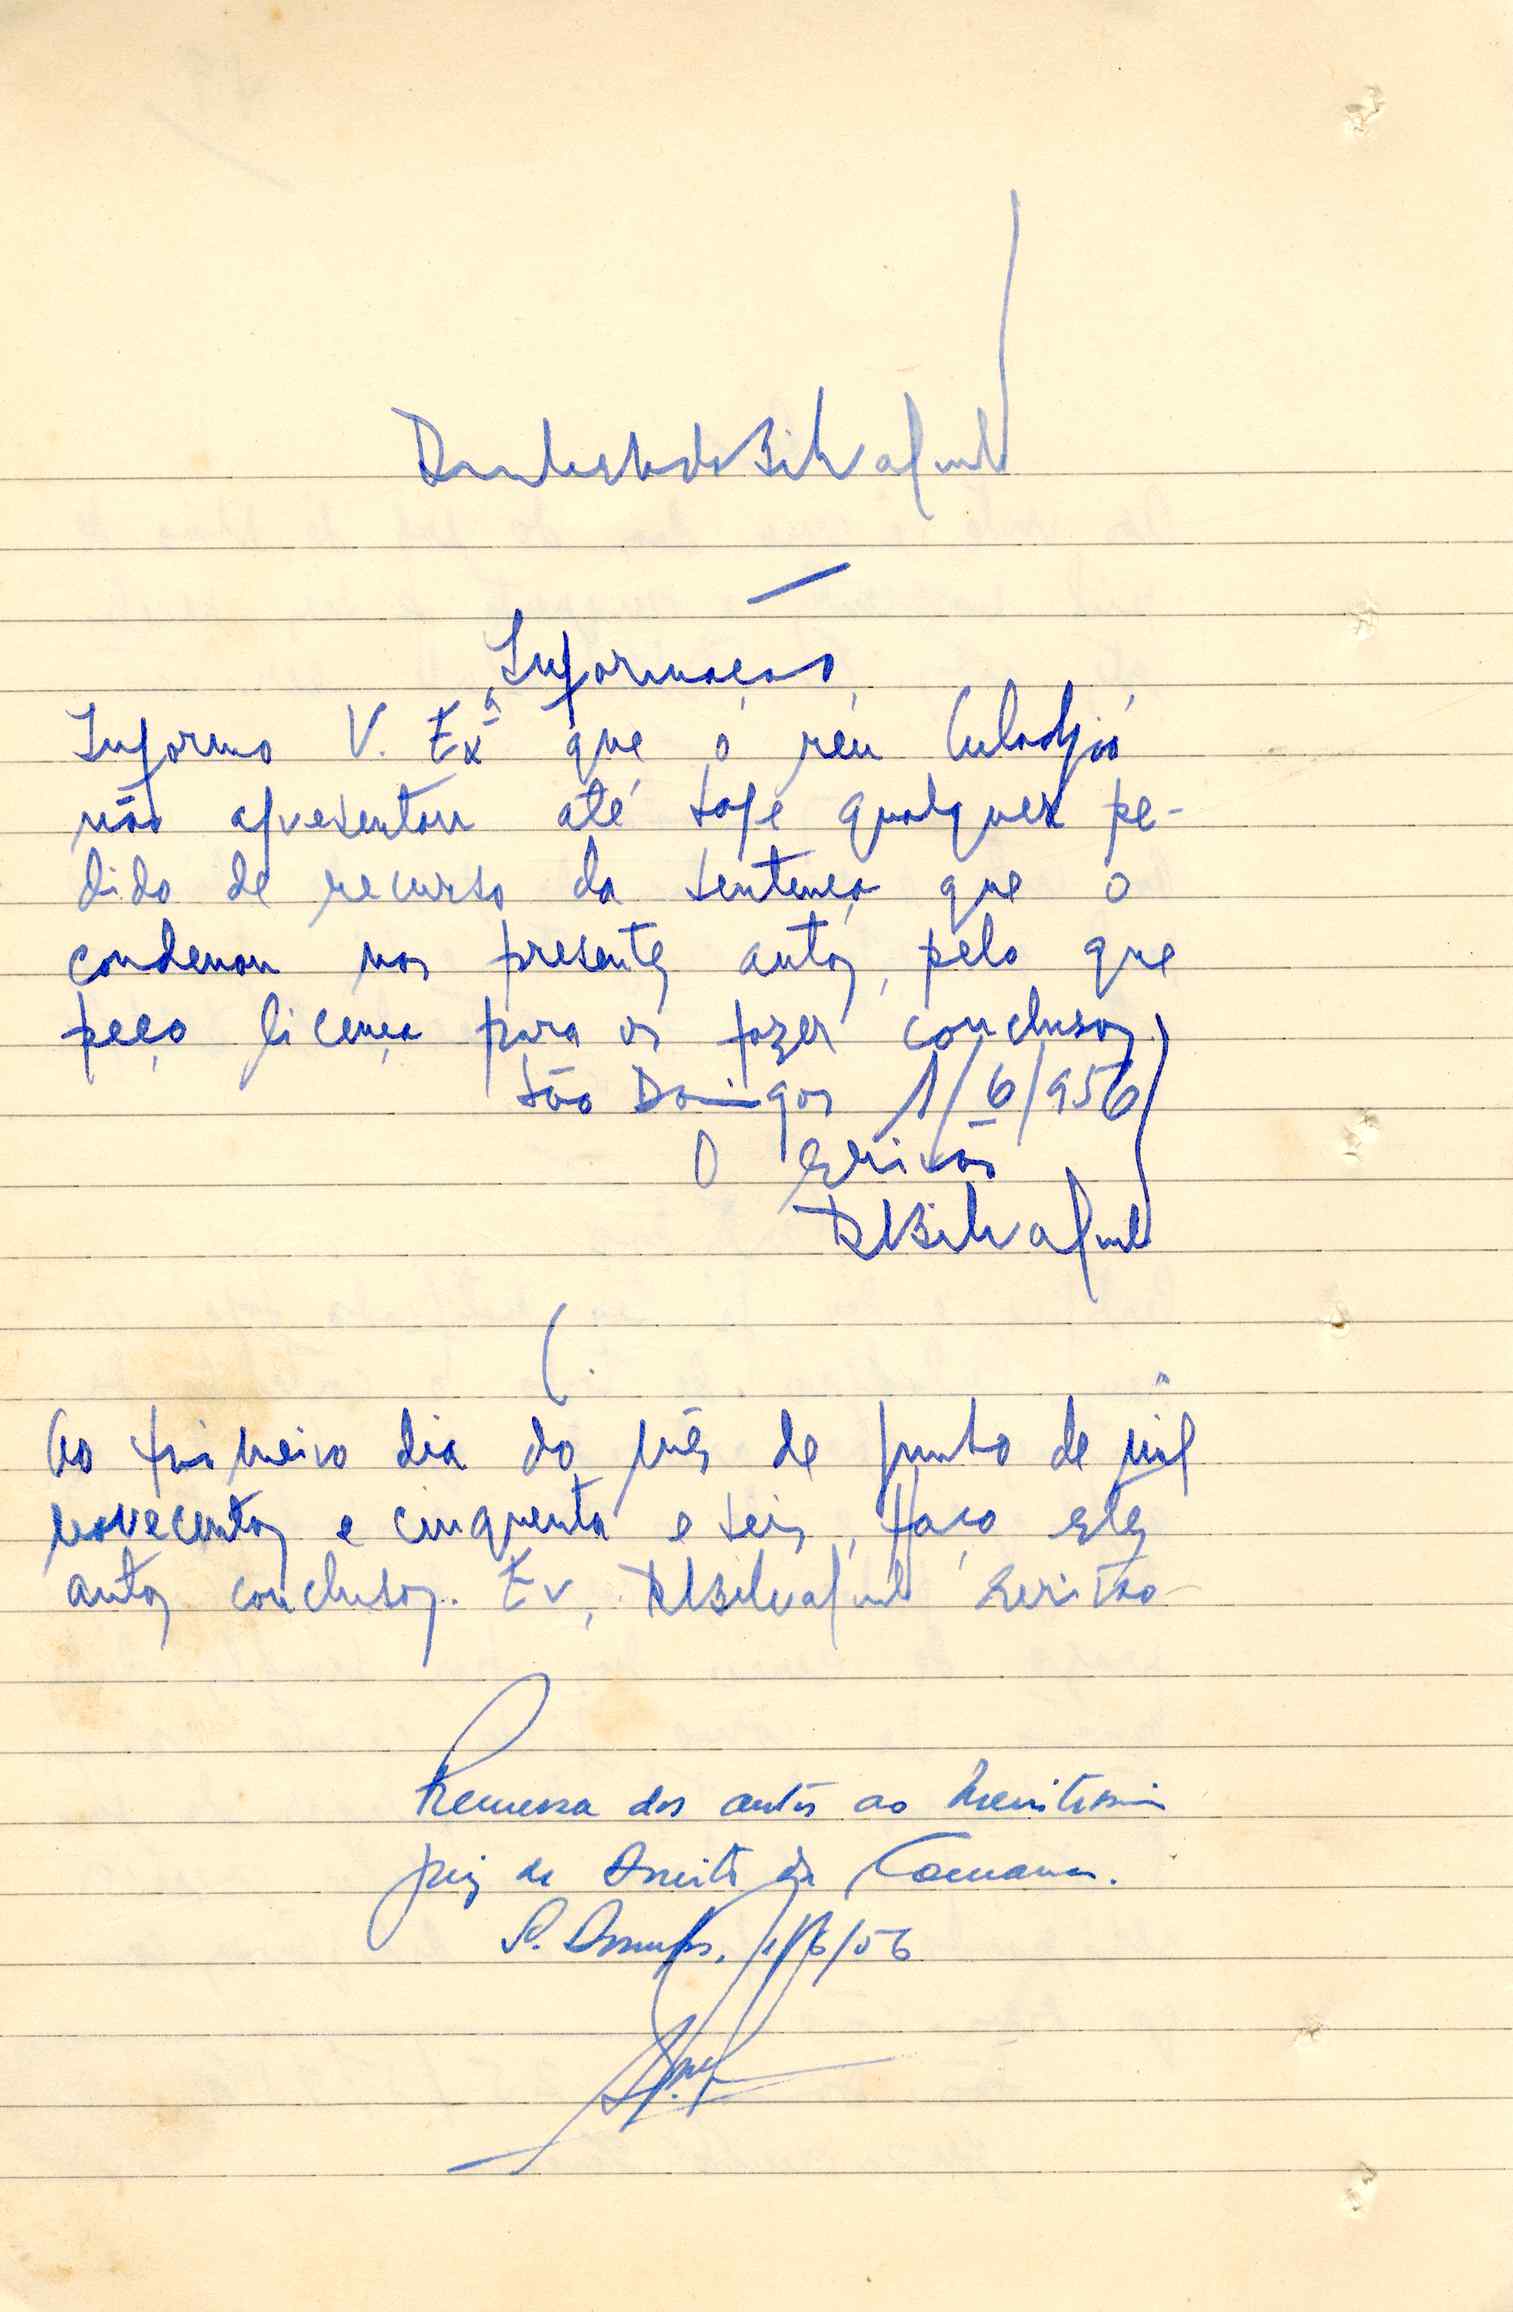 Informação
Informo V. Exª que o réu
não apresentou até hoje qualquer pe-
dido de recurso da sentença que o
condenou nos presentes autos, pelo que
peço licença para os fazer conclusos.
São Domingos 1/6/956
O Escrivão
Ao primeiro dia do mês de junho de mil
novecentos e cinquenta e seis, faço estes
autos conclusos. Eu, Escrivão
Remessa dos autos ao Meritissimo
Juiz de Direito da Comarca.
S. Domingos, 1/6/56